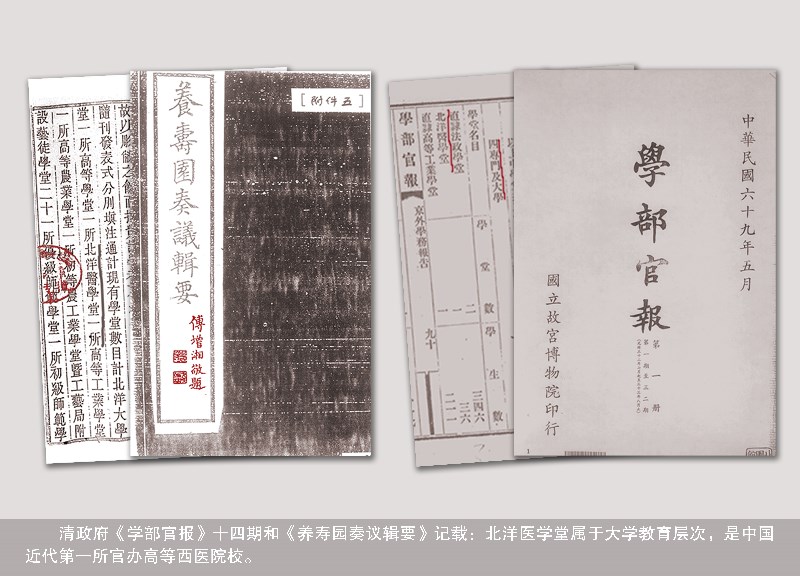 養壽園奏議輯要
[附件五]
傅增湘敬題
刊發表式分別填注通計現有學堂數目計北洋大學
堂一所高等學堂一所北洋醫學堂一所高等工業學堂
一所高等農業學堂一所初等農工業學堂暨工藝局附
設藝徒學堂二十一所優級師範學堂一所初級師範學
中華民國六十九年五月
學部官報
第一冊
第一期至三二期
國立故宮博物院印行
四專門及大學
學堂名目 學堂數 學生數
直隸法政學堂
北洋醫學堂
直隸高等工業學堂
學部官報
京外學務報告
九十
清政府《学部官报》十四期和《养寿园奏议辑要》记载：北洋医学堂属于大学教育层次，是中国
近代第一所官办高等西医院校。